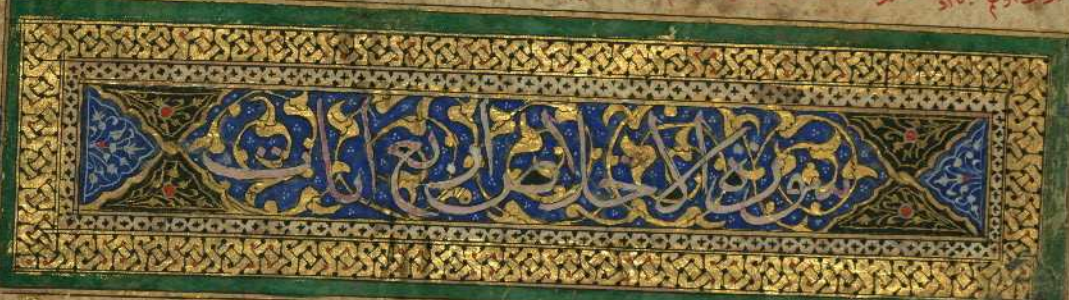 سورة الاخلاص اربع ايات